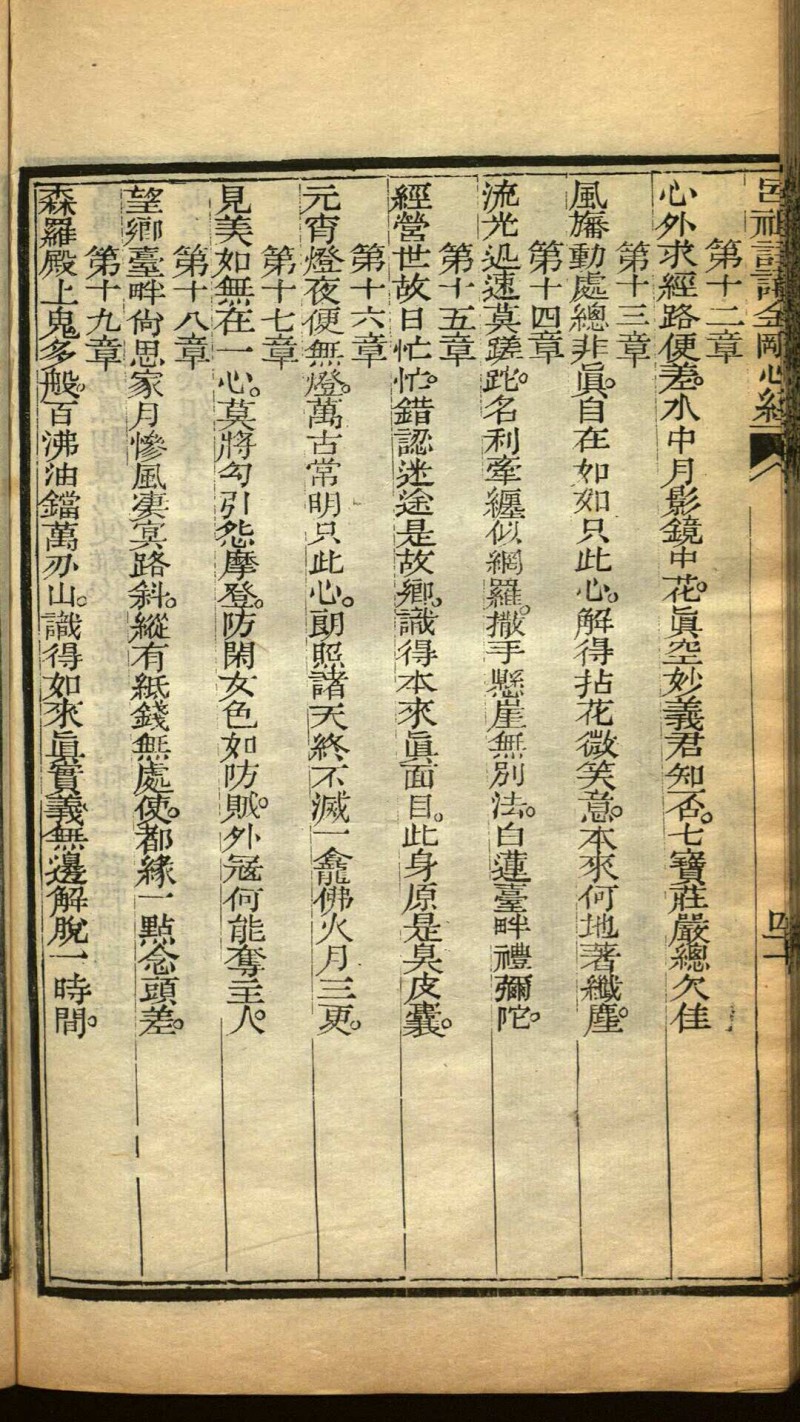 呂祖註講金剛心經
第十二章
心外求經路便差。水中月影鏡中花。眞空妙義君知否。七寶莊嚴總欠佳
第十三章
風旛動處總非眞。自在如如只此心。解得拈花微笑意。本來何地著纖塵。
第十四章
流光迅速莫蹉跎。名利牽纏似網羅。撒手懸崖無別法。白蓮臺畔禮彌陀。
第十五章
經營世故日忙忙。錯認迷途是故鄉。識得本來眞面目。此身原是臭皮囊。
第十六章
元宵燈夜便無燈。萬古常明只此心。朗照諸天終不滅一龕佛火月三更。
第十七章
見美如無在一心。莫將勾引怨摩登。防閑女色如防賊。外寇何能奪主人。
第十八章
望鄉臺畔尙思家月慘風凄冥路斜。縱有紙錢無處使。都緣一點念頭差。
第十九章
森羅殿上鬼多般。百沸油鐺萬刃山。識得如來眞實義無邊解脫一時間。